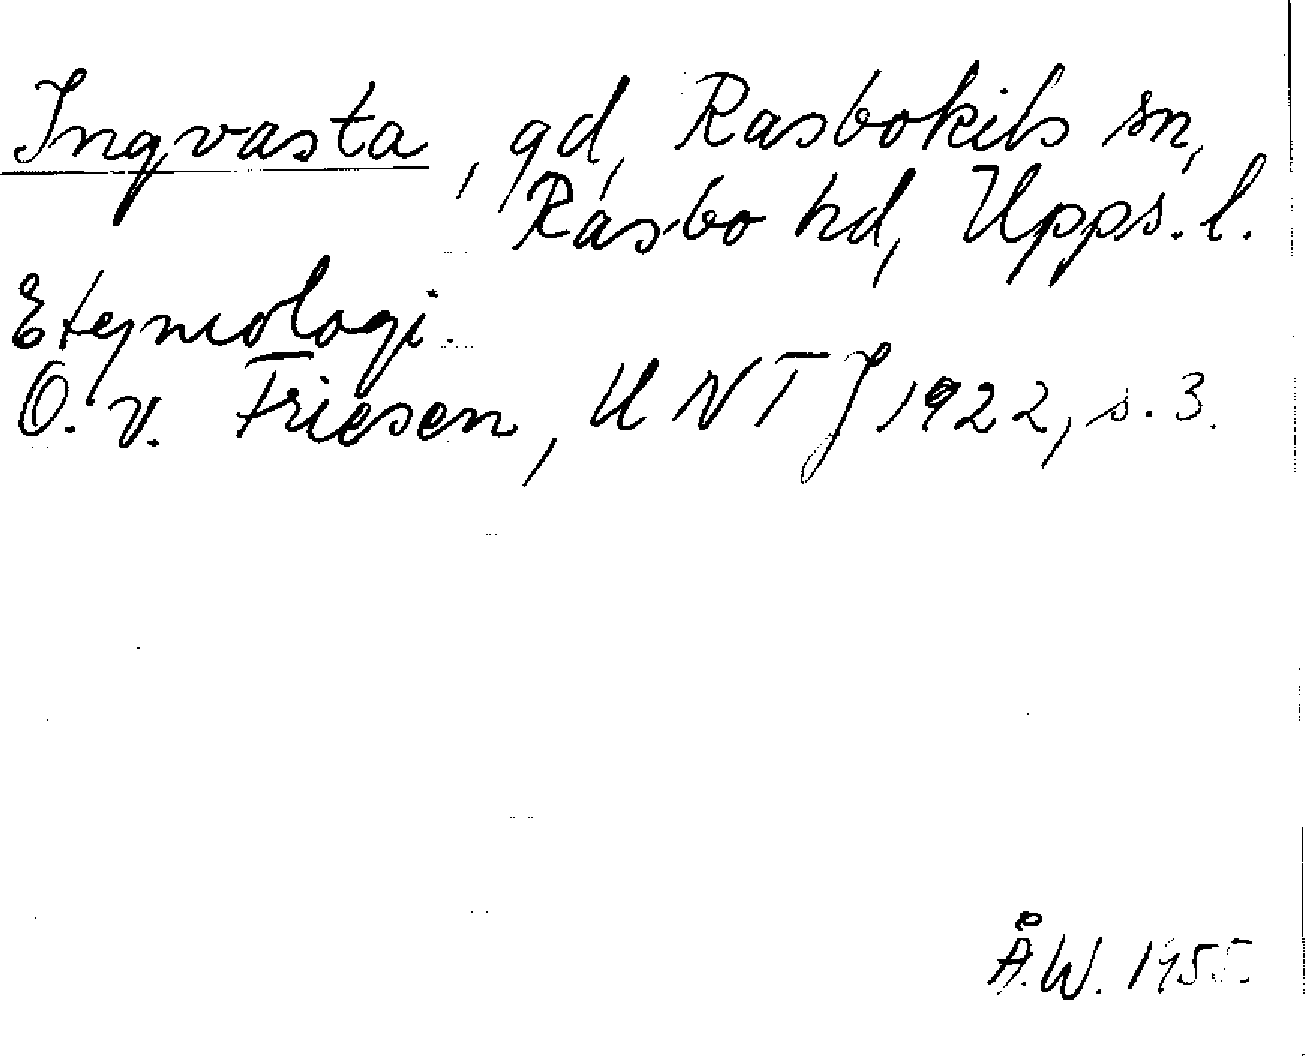 Ingvasta, gd, Rasbokils sn,
Rasbo hd, Upps. l.
Etymologi.
O. v. Friesen, UNTJ 1922, s. 3.
Å.W. 1955.